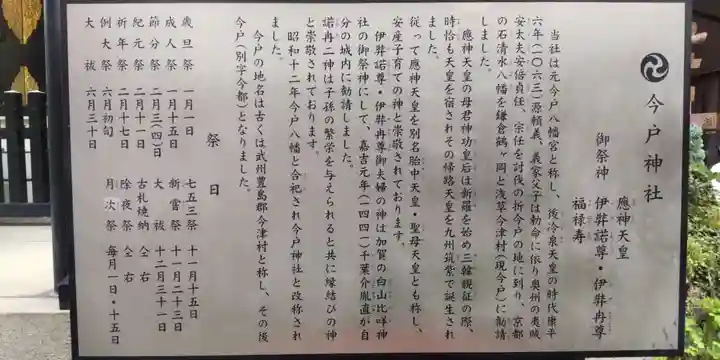 今戸神社
御祭神
應神天皇
伊弉諾尊・伊弉冉尊
福禄寿
当社は元今戸八幡宮と称し、後冷泉天皇の時代康平
六年（一〇六三）源頼義、義家父子は勅命に依り奥州の夷賊
安太夫安倍貞任、宗任を討伐の折今戸の地に到り、京都
の石清水八幡を鎌倉鶴ヶ岡と浅草今津村（現今戸）に勧請
しました。
應神天皇の母君神功皇后は新羅を始め三韓親征の際、
時恰も天皇を宿されその帰路天皇を九州筑紫で誕生され
ました。
従って應神天皇を別名胎中天皇・聖母天皇とも称し、
安産子育ての神と崇敬されております。
伊弉諾尊・伊弉冉尊御夫婦の神は加賀の白山比咩神
社の御祭神にして、嘉吉元年（一四四一）千葉介胤直が自
分の城内に勧請しました。
諾冉二神は子孫の繁栄を与えられると共に縁結びの神
と崇敬されております。
昭和十二年今戸八幡と合祀され今戸神社と改称され
ました。
今戸の地名は古くは武州豊島郡今津村と称し、その後
今戸（別字今都）となりました。
祭日
歳旦祭 一月一日
成人祭 一月十五日
節分祭 二月三（四）日
紀元祭 二月十一日
祈年祭 二月十七日
例大祭 六月初旬
大祓 六月三十日
七五三祭 十一月十五日
新嘗祭 十一月二十三日
大祓 十二月三十一日
古札焼納 仝右
除夜祭 仝右
月次祭 毎月一日・十五日